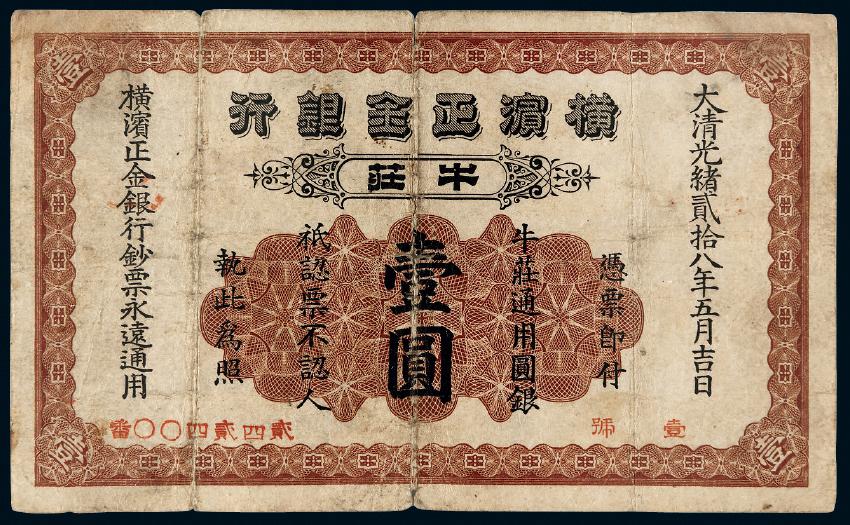 壹
壹
橫濱正金銀行
牛莊
大清光緒貳拾八年五月吉日
憑票即付
牛莊通用圓銀
壹圓
祗認票不認人
執此爲照
橫濱正金銀行鈔票永遠通用
壹號
貳四貳四〇〇番
壹
壹